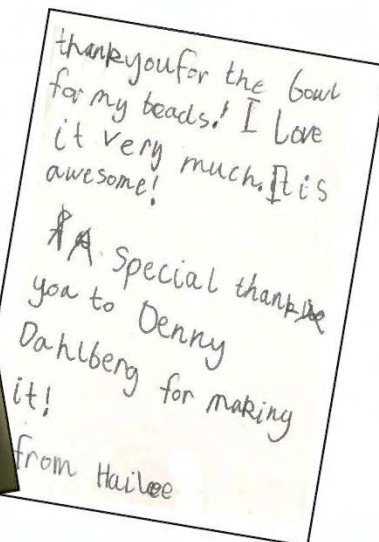 thankyou for the bowl
for my beads! I Love
it very much. It is
awesome!
A special thank
you to Denny
Dahlberg for making
it!
from Hailee